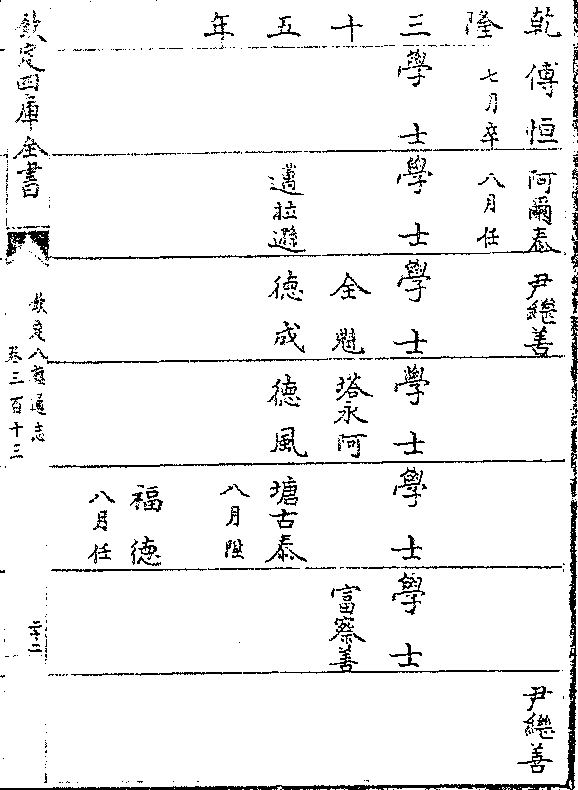 乾隆三十五年
傅恒
七月卒
學士
阿爾泰
八月任
學士
邁拉遜
尹繼善
學士
全魁
德成
學士
塔永阿
德風
學士
塘古泰
八月陞
福德
八月任
學士
富察善
尹繼善
欽定四庫全書
欽定八旗通志
卷三百十三
二十二